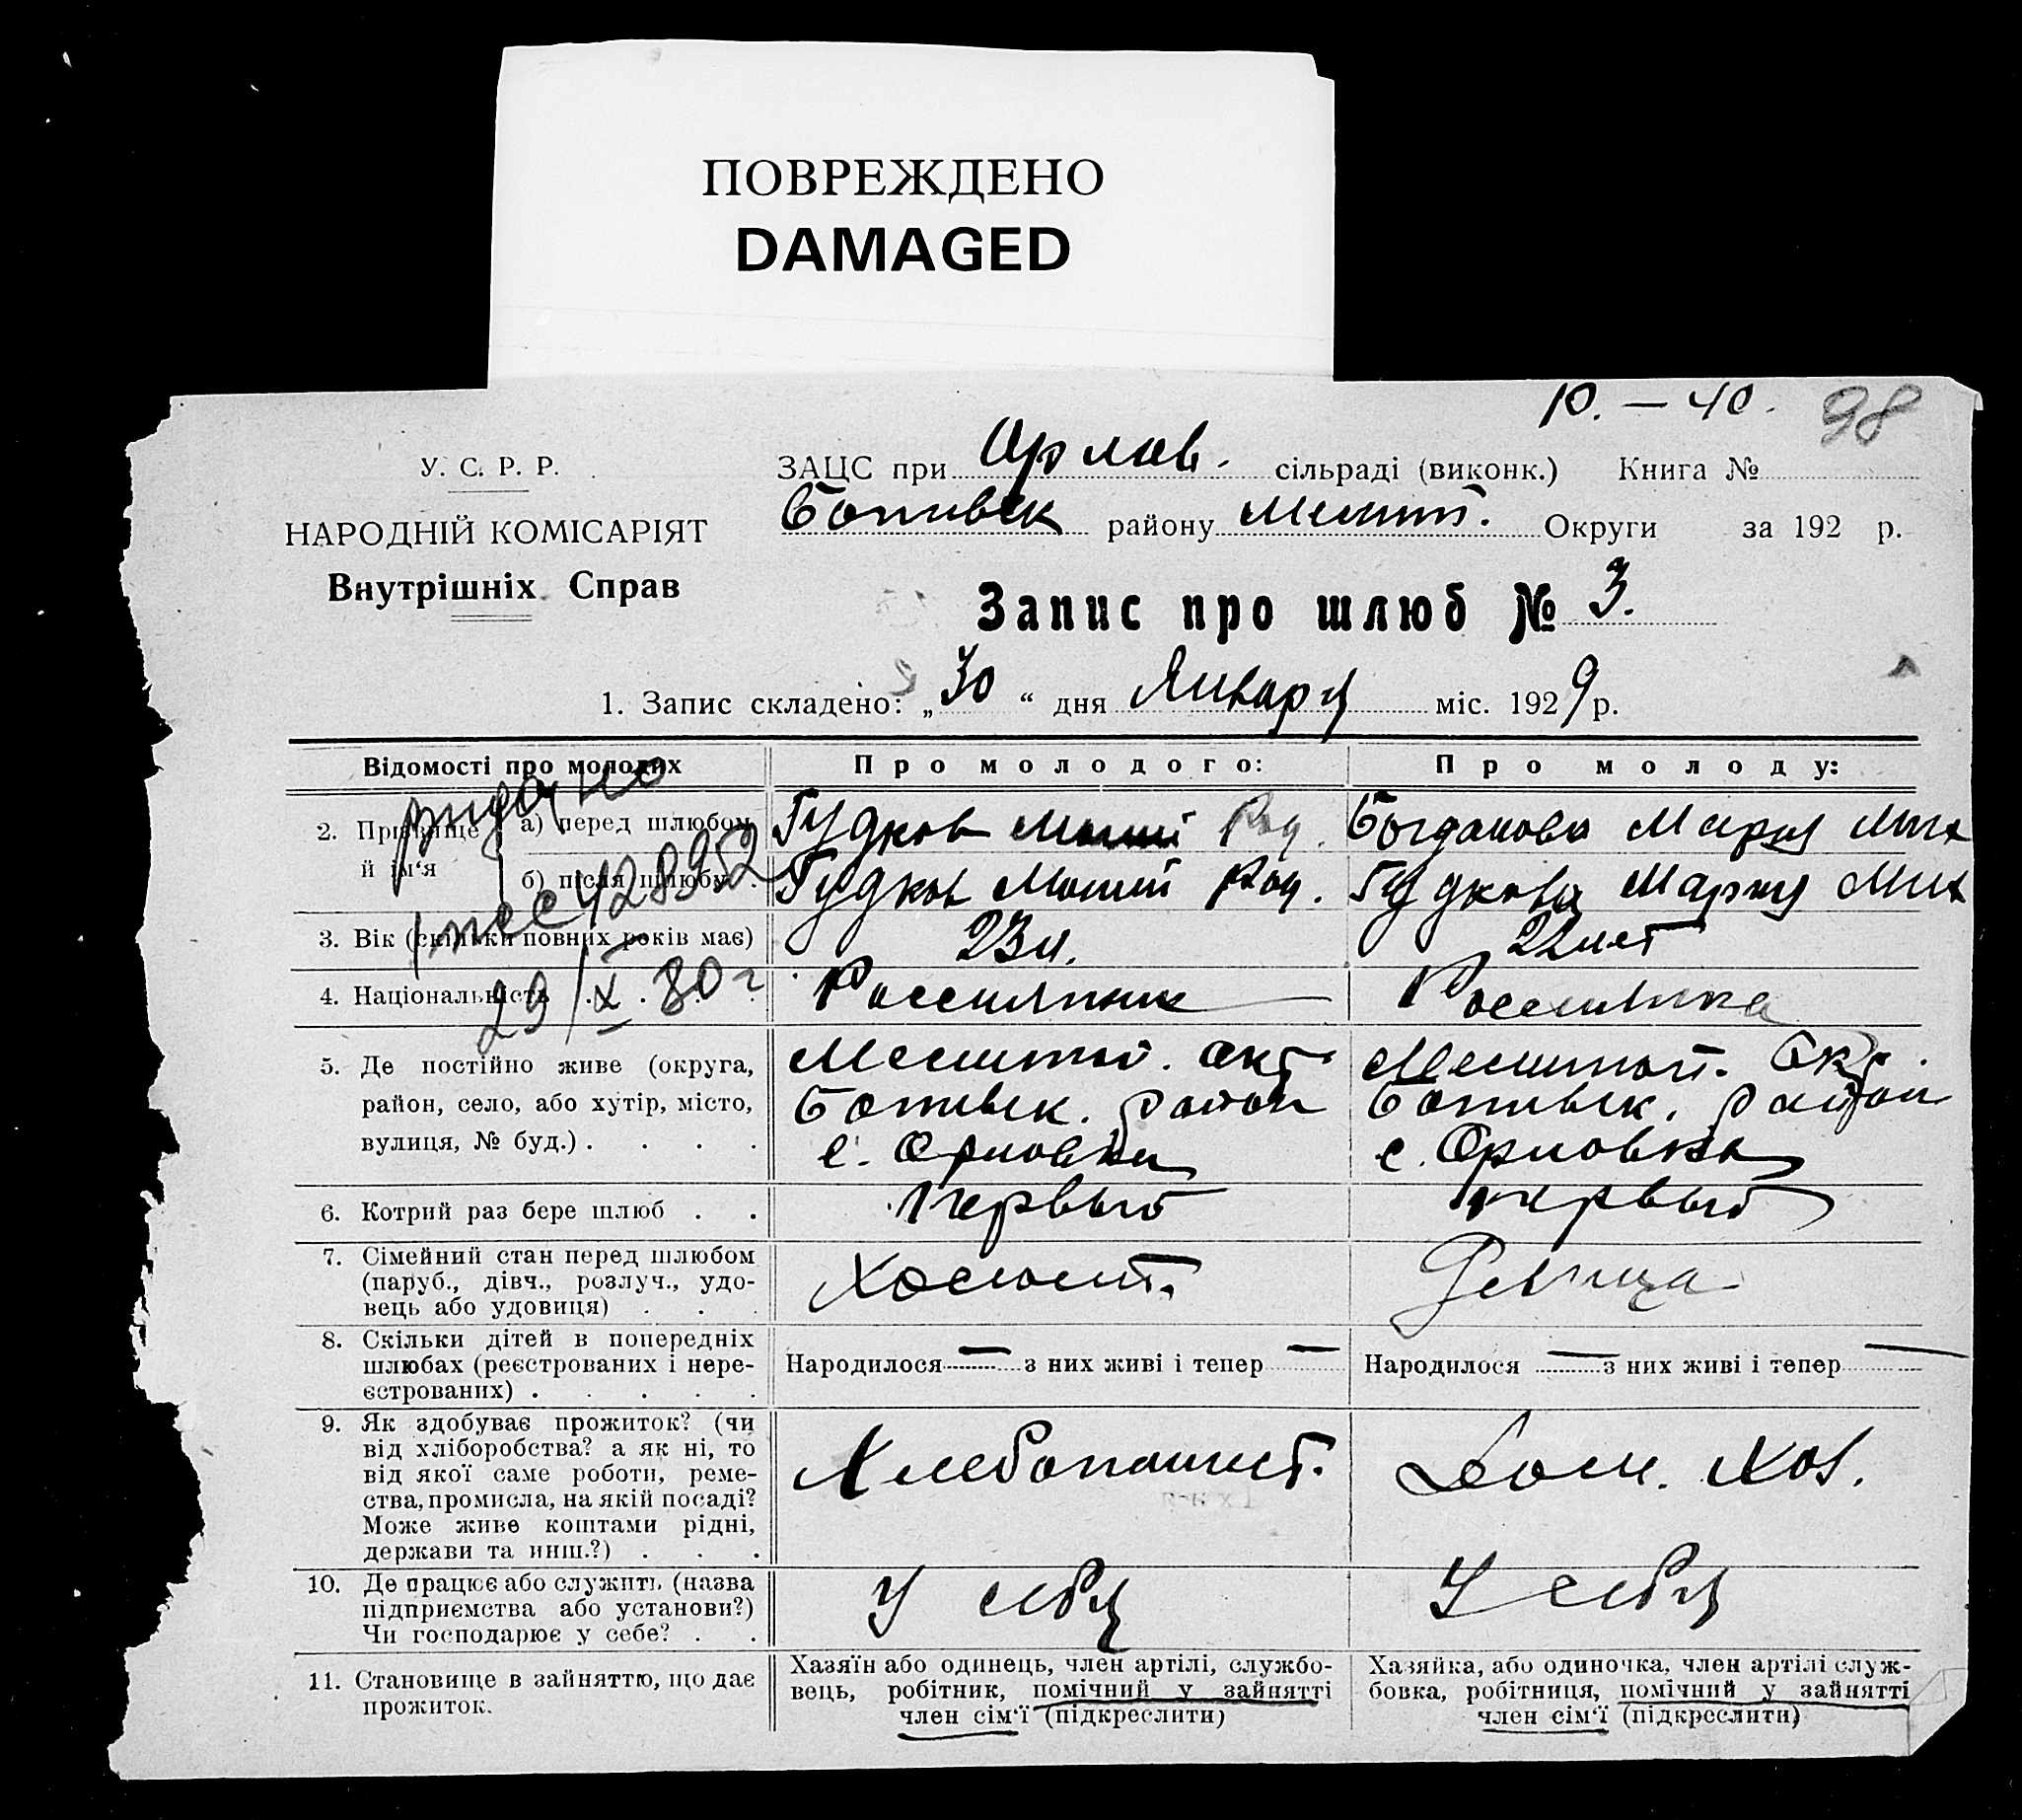 ПОВРЕЖДЕНО
DAMAGED
10. — 40. 98
У. С. Р. Р.
НАРОДНІЙ КОМІСАРІЯТ
Внутрішніх Справ
ЗАЦС при Орлов. сільраді (виконк.) Книга №
Ботивск району Мелит. Округи за 192 р.
Запис про шлюб № 3.
1. Запис складено: „30“ дня Января міс. 1929 р.
Відомості про молодих
Про молодого:
Про молоду:
видано
428952
29/X 80 г
2. Прізвище й ім‘я
а) перед шлюбом
Гудков Род.
Богданова Мария Мих
б) після шлюбу
Гудков Род.
Гудкова Мария Мих
3. Вік (скільки повних років має)
23 л.
22 лет
4. Національність
Россиянин
Россиянка
5. Де постійно живе (округа,
район, село, або хутір, місто,
вулиця, № буд.)
Мелитой. окг
Ботивск. район
с. Орловка
Мелитоп. Окр.
Ботивск. район
с. Орловка
6. Котрий раз бере шлюб
первый
первый
7. Сімейний стан перед шлюбом
(паруб., дівч., розлуч., удо-
вець або удовиця)
Холост.
Девица
8. Скільки дітей в попередніх
шлюбах (реєстрованих і нере-
єстрованих)
Народилося — з них живі і тепер —
Народилося — з них живі і тепер —
9. Як здобуває прожиток? (чи
від хліборобства? а як ні, то
від якої саме роботи, реме-
ства, промисла, на якій посаді?
Може живе коштами рідні,
держави та инш.?)
Хлебопашест.
Дом. Хоз.
10. Де працює або служить (назва
підприємства або установи?)
Чи господарює у себе?
У себя
У себя
11. Становище в зайняттю, що дає
прожиток.
Хазяїн або одинець, член артілі, службо-
вець, робітник, помічний у зайнятті
член сім‘ї (підкреслити)
Хазяйка, або одиночка, член артілі служ-
бовка, робітниця, помічний у зайнятті
член сім‘ї (підкреслити)